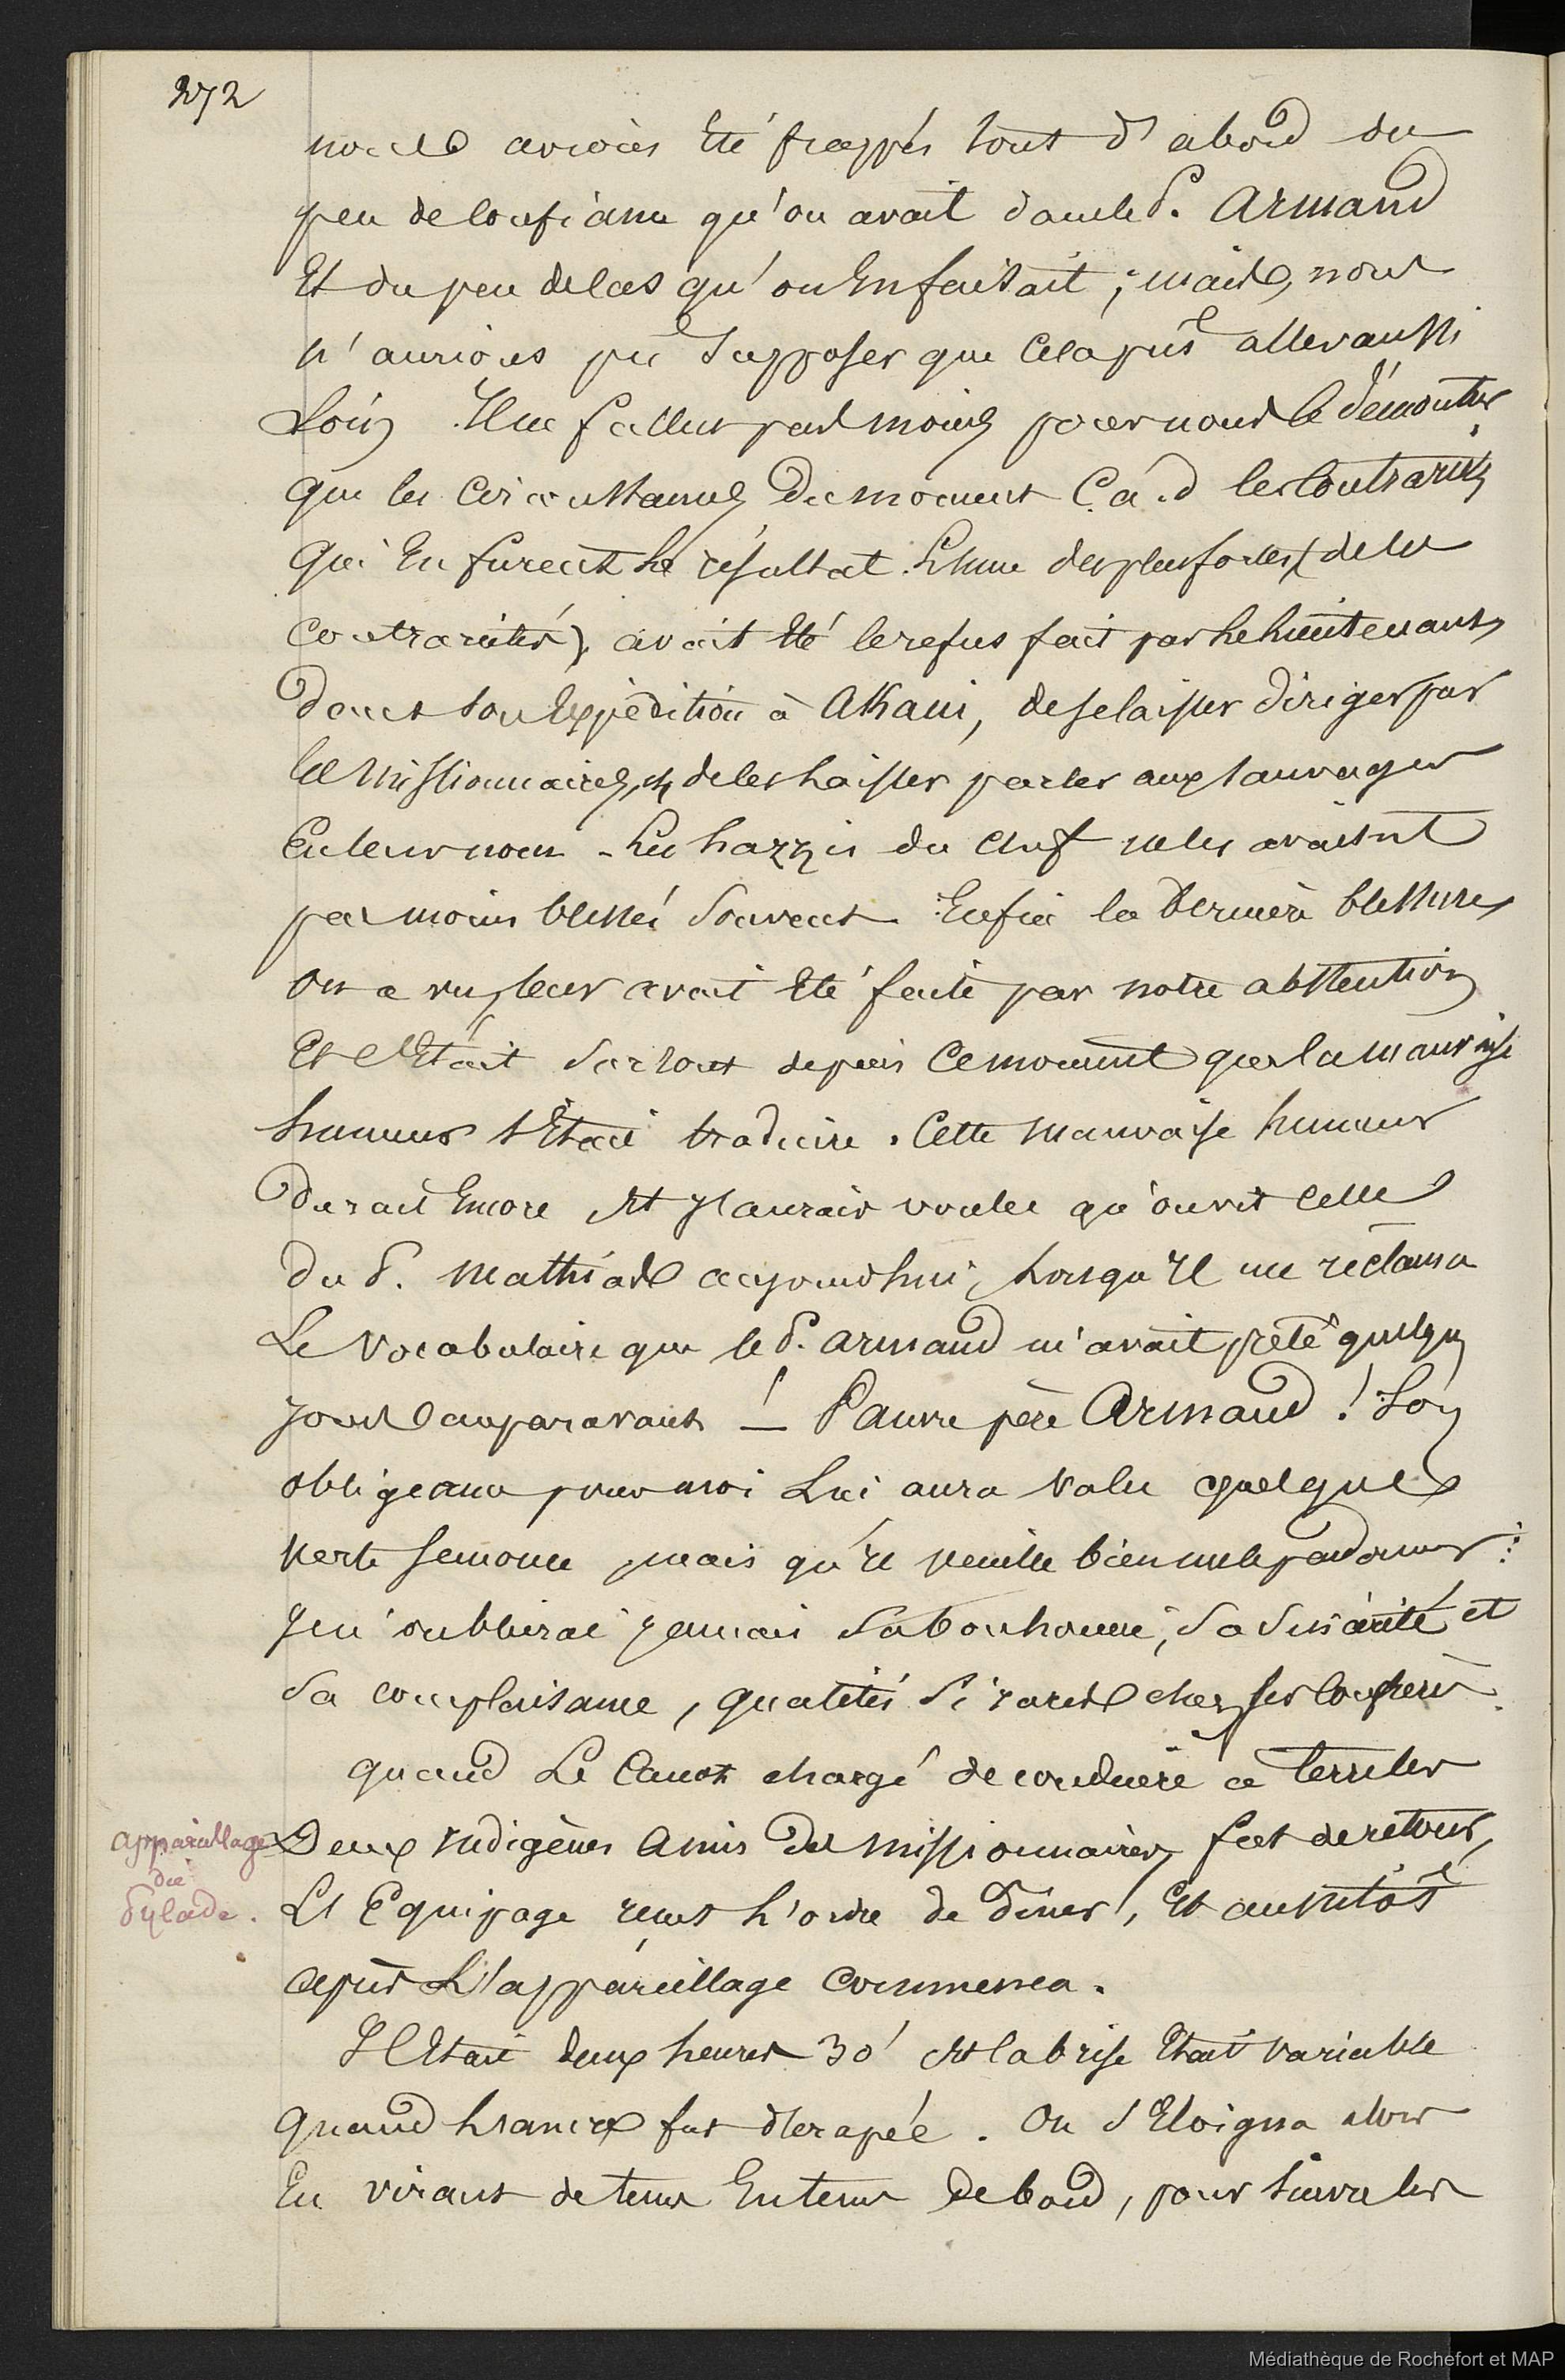 272
nous avions Eté frappés tout d'abord du
peu de confiance qu'on avait dans le P. Armand
Et du peu de cas qu'on En faisait ; mais, nous
n'aurions pu Supposer que Cela pût aller aussi
Loin. Il ne fallut pas moins pour nous le démontrer,
que les Circonstances Du moment C.à.d les Contrariétés
Qui En furent Le résultat. L'une des plus fortes (de les
contrariétés), avait Eté le refus fait par Le Lieutenant,
Dans son Expédition à AKaui, de se laisser Diriger par
les Missionnaires, et de les Laisser parler aux sauvages
En leur nom - Les Lazzis du chef ne les avaient
pas moins blessés Souvent. Enfin la Dernière blessure
on a vu, leur avait Eté faite par notre abstention
Et c'Etait Surtout depuis Ce moment que la mauvaise
humeur s'Etait traduire. Cette mauvaise humeur
Durait Encore Et J'aurais voulu qu'on vit celle
du P. Mathias aujourd'hui, Lorsqu'Il me réclama
Le Vocabulaire que le P. Armand m'avait prêté quelques
Jours auparavant ! — Pauvre père Armand ! Son
obligeance pour moi Lui aura valu quelques
verte semonce, mais qu'il veuille bien me le pardonner :
Je n'oublierai jamais Sa bonhomie, Sa Sincérité et
Sa complaisance, qualités Si rares chez ses Confrères.
Quand Le Canot chargé de conduire à Terre les
Deux Indigènes Amis Des Missionnaires, fut de retour,
L'Equipage reçut L'ordre de Dîner, Et aussitôt
après L'appareillage commença.
Il Etait deux heures 30' Et la brise Etait Variable
Quand L'ancre fut dérapée. On S'Eloigna alors
En virant de tems En tems De bord, pour suivre les
appareillage
du
Pylade.
Médiathèque de Rochefort et MAP